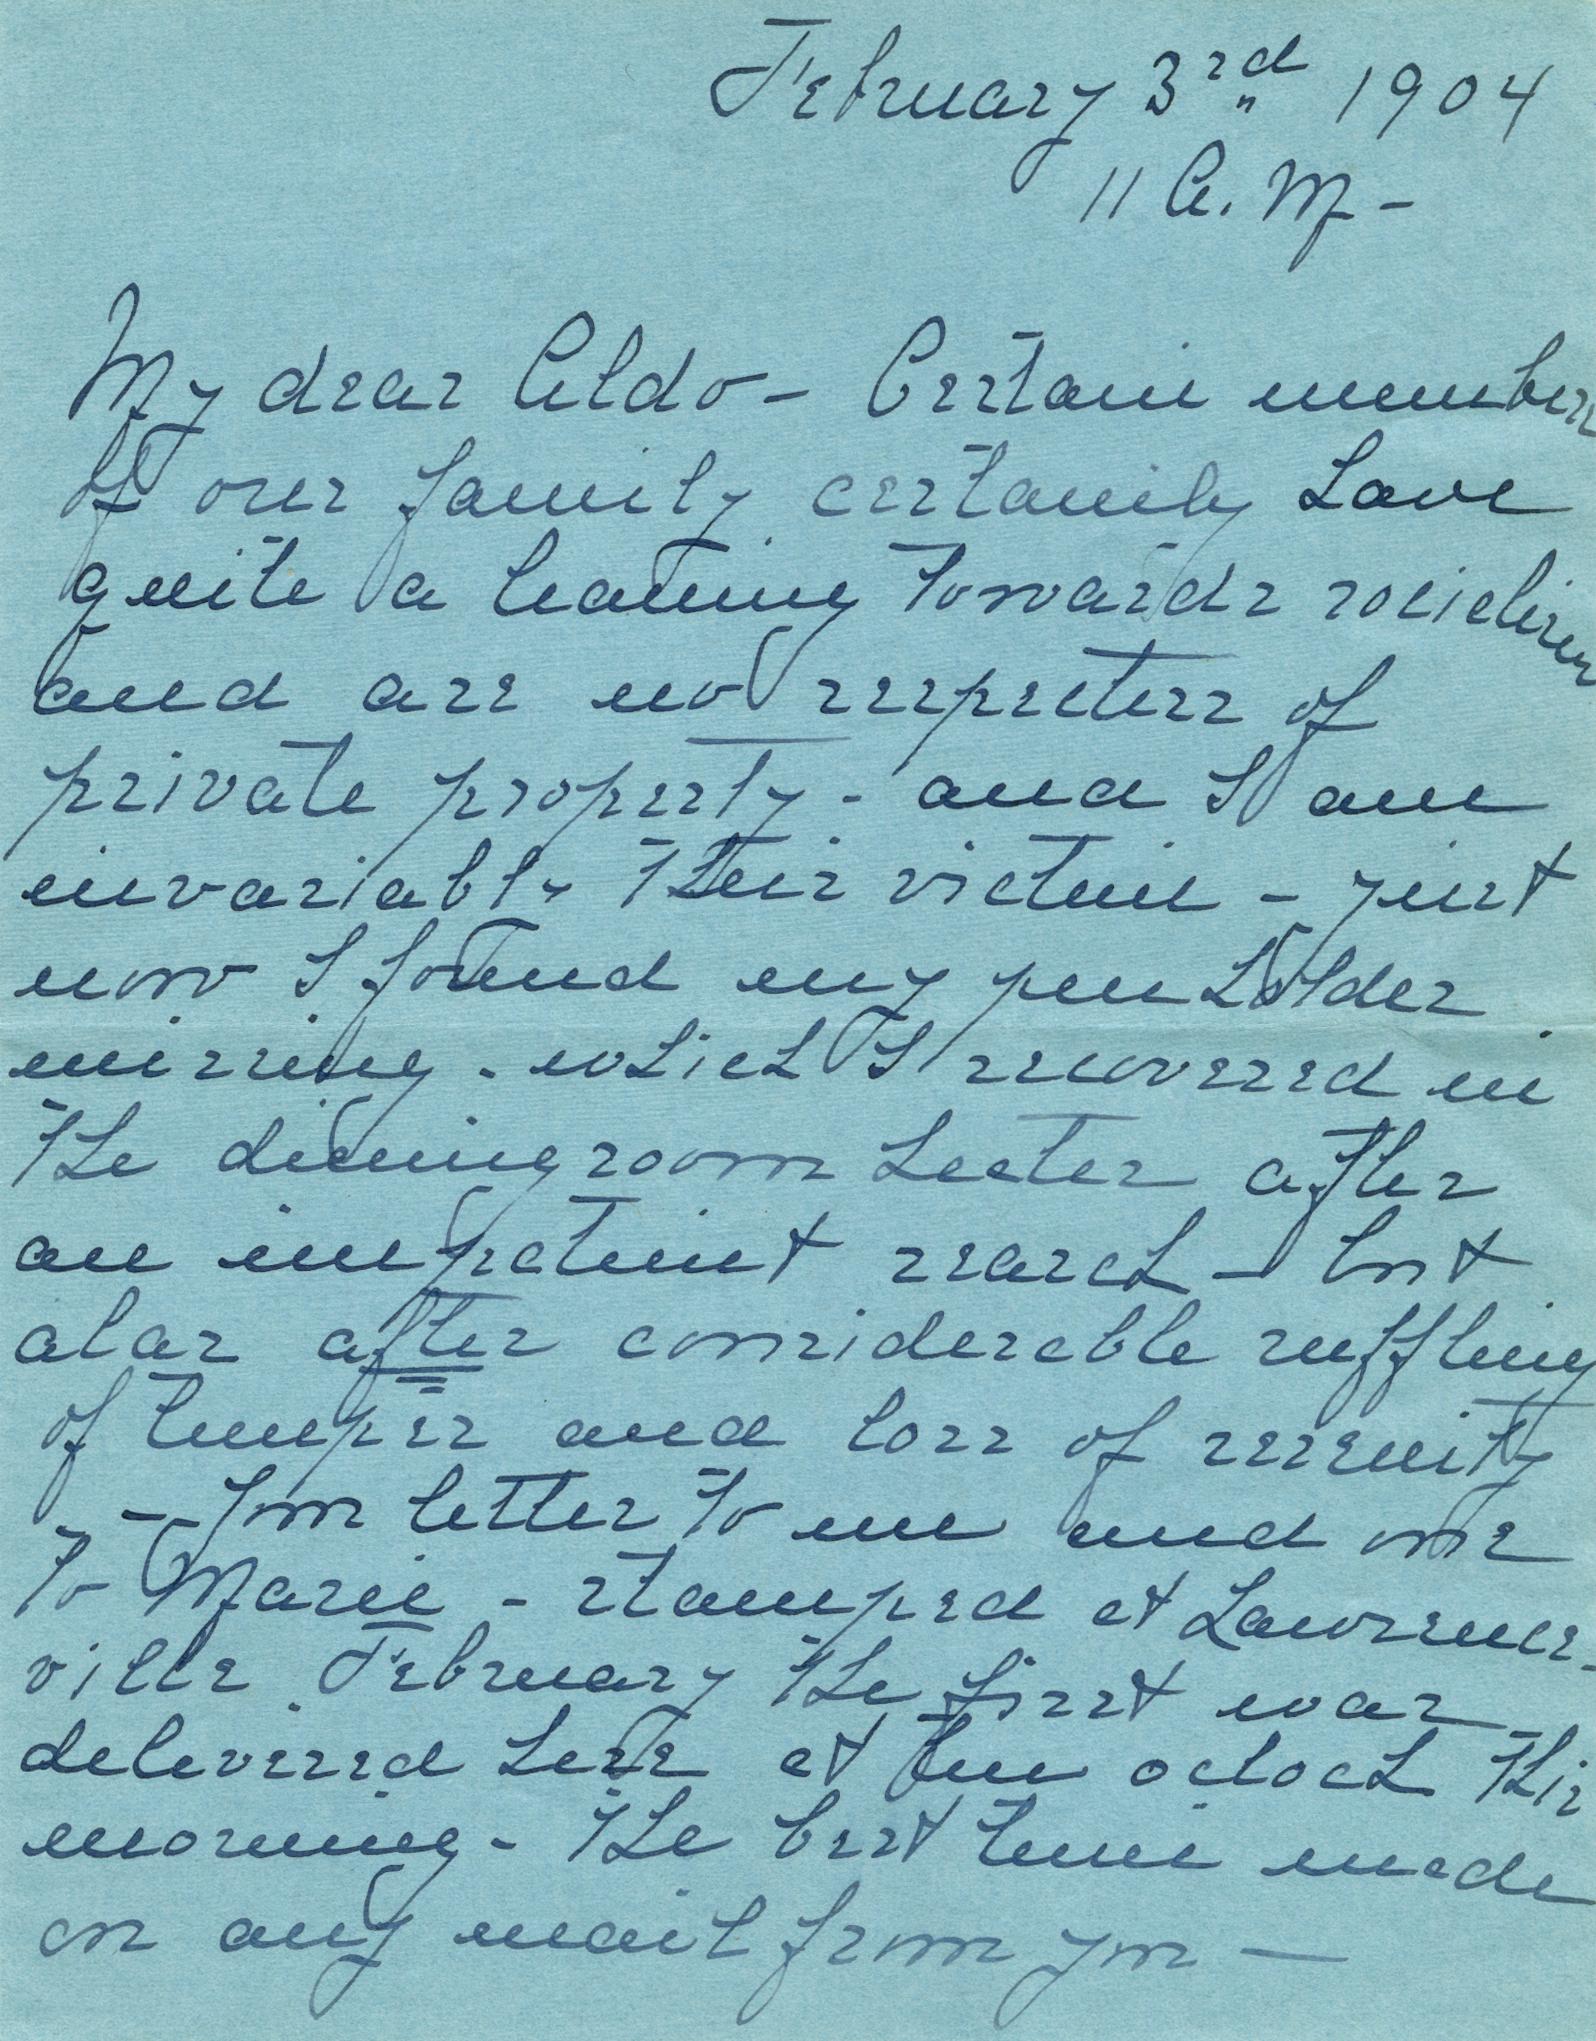 February 3rd 1904
11 A. M -
My dear Aldo - Certain members
of our family certainly have
quite a leaning towards socialism
and are no respecters of
private property - and I am
invariably their victim - just
now I found my penholder
missing - which I recovered in
the diningroom heater after
an impatient search - but
alas after considerable ruffling
of temper and loss of serenity
- Your letter to me and one
to Marie - stamped at Lawrence-
ville February the first was
delivered here at ten oclock this
morning - the best time made
on any mail from you -